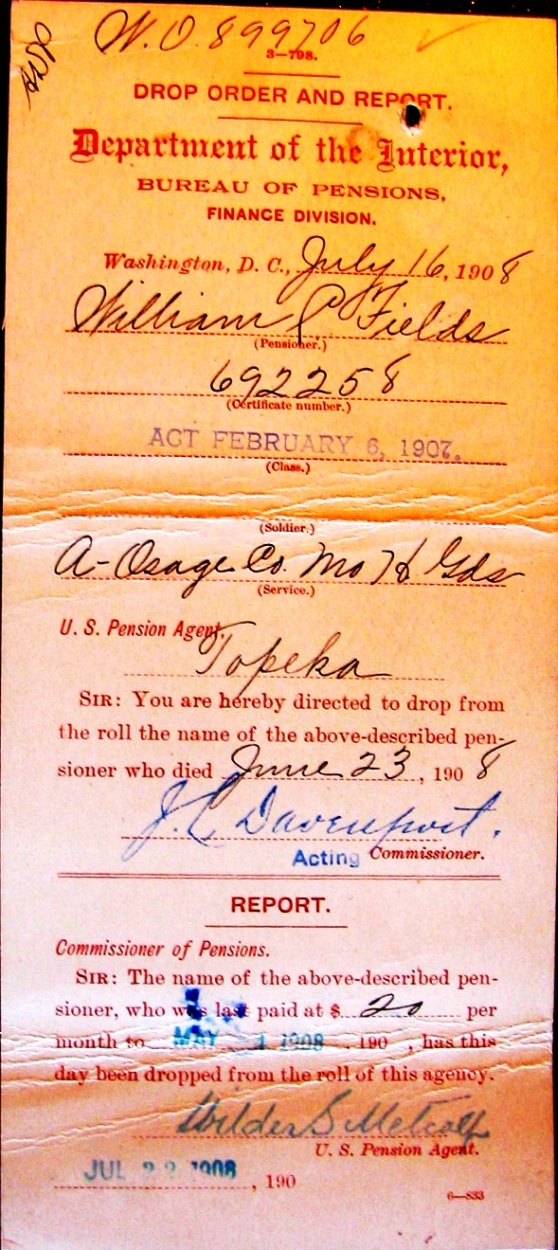 W.O. 899706
3—798.
DROP ORDER AND REPORT.
Department of the Interior,
BUREAU OF PENSIONS,
FINANCE DIVISION.
Washington, D. C., July 16, 1908
William P Fields
(Pensioner.)
692258
(Certificate number.)
ACT FEBRUARY 6, 1907.
(Class.)
(Soldier.)
A-Osage Co. Mo H Gds
(Service.)
U. S. Pension Agent,
Topeka
SIR: You are hereby directed to drop from
the roll the name of the above-described pen-
sioner who died June 23, 1908
J. L. Davenport.
Acting Commissioner.
REPORT.
Commissioner of Pensions.
SIR: The name of the above-described pen-
sioner, who was last paid at $ 20 per
month to MAY 4 1908, 190 , has this
day been dropped from the roll of this agency.
Wilder S Metcalf
U. S. Pension Agent.
JUL 22 1908, 190
6—833